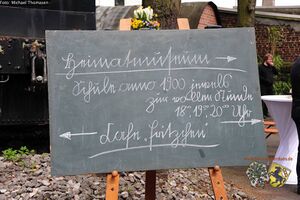 Foto: Michael Thomassen
Heimatmuseum
Schule anno 1900 jeweils
zur vollen Stunde
18⁰⁰, 19⁰⁰, 20⁰⁰ Uhr
"Lafe-fritzchen"